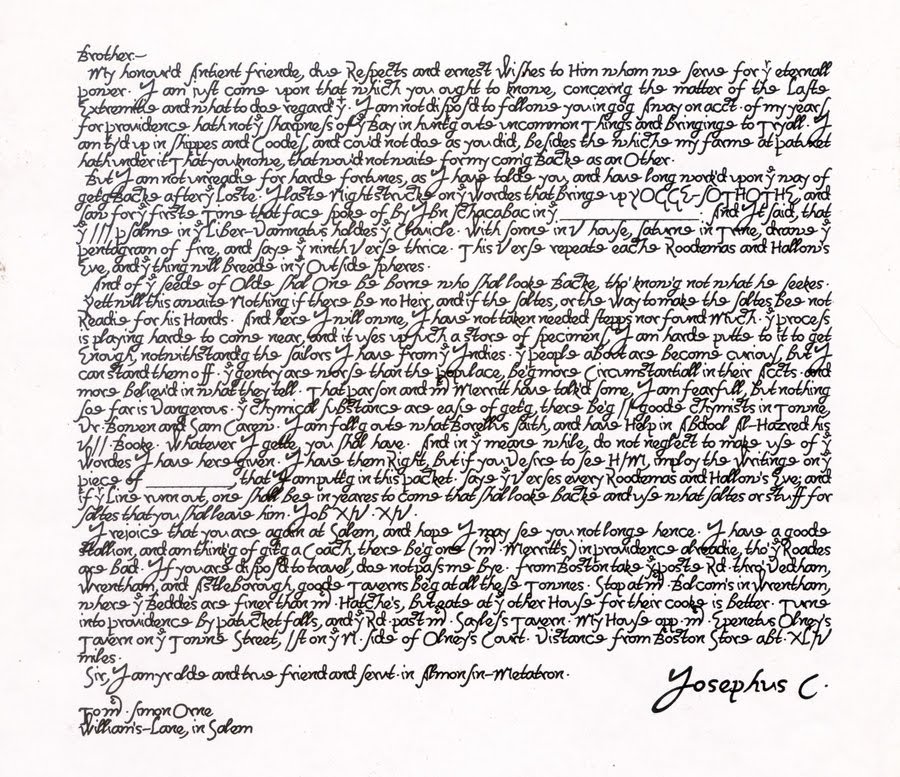 Brother:—
My honour'd Antient friende, due Respects and ernest Wishes to Him whom we serve for yͤ eternall
power. I am just come upon that which you ought to knowe, concern'g the matter of the Laste
Extremitie and what to doe regard'g yᵗ. I am not dispos'd to followe you in go'g Away on acct. of my years,
for Providence hath not yͤ sharpness of yͤ Bay in hunt'g oute uncommon Things and bringinge to Tryall. I
am ty'd up in shippes and Goodes, and cou'd not doe as you did, besides the whiche my farme at patuxet
hath under it That you knowe, that wou'd not waite for my com'g Backe as an Other.
But I am not unreadie for harde fortunes, as I have tolde you, and have long work'd upon yͤ way of
get'g Backe after yͤ Loste. I laste Night strucke on yͤ Wordes that bringe up YOGGE-SOTHOTHE, and
saw for yͤ firste Time that face spoke of by Ibn Schacabac in yͤ ____________. And It said, that
yͤ III psalme in yͤ Liber-Damnatus holdes yͤ Clavicle. With sonne in V house, saturne in Trine, drawe yͤ
pentagram of fire, and saye yͤ ninth Verse thrice. This Verse repeate eache Roodemas and Hallow's
Eve, and yͤ thing will breede in yͤ Outside spheres.
And of yͤ seede of Olde shal One be borne who shal looke Backe, tho' know'g not what he seekes.
Yett will this availe Nothing if there be no Heir, and if the saltes, or the Way to make the saltes, bee not
Readie for his Hands. And here I will owne, I have not taken needed stepps nor found Much. yͤ process
is playing harde to come near, and it uses up such a store of specimens, I am harde putte to it to get
Enough, notwithstand'g the sailors I have from yͤ Indies. yͤ people aboute are become curious, but I
can stand them off. yͤ gentry are worse than the populace, be'g more Circumstantiall in their Accts. and
more believ'd in what they tell. That parson and Mͬ Merritt have talk'd some, I am fearfull, but nothing
soe far is Dangerous. yͤ Chymical substance are easie of get'g, there be'g II goode Chymists in Towne,
Dr. Bowen and Sam Carew. I am foll'g oute what Borellus saith, and have Help in Abdool Al-Hazred his
VII. Booke. Whatever I gette, you shal have. And in yͤ meane while, do not neglect to make use of yͤ
Wordes I have here given. I have them Right, but if you Desire to see HIM, imploy the Writinge on yͤ
piece of ____________, that I am putt'g in this packet. saye yͤ Verses every Roodemas and Hallow's Eve; and
if yͤ Line runn out, one shall bee in yeares to come that shal looke backe and use what saltes or stuff for
saltes that you shal leave him. Job XIV. XIV.
I rejoice that you are again at Salem, and hope I may see you not longe hence. I have a goode
stallion, and am think'g of git'g a Coach, there be'g one (Mͬ. Merritt's) in providence alreadie, tho' yͤ Roades
are bad. If you are dispos'd to travel, doe not pass me bye. from Boston take yͤ poste Rd. thro' Dedham,
Wrentham, and Attleborough, goode Taverns be'g at all these Townes. Stop at Mͬ. Bolcom's in Wrentham,
where yͤ Beddes are finer than Mͬ. Hatch's, but eate at yͤ other House for their cooke is better. Turne
into providence by patucket falls, and yͤ Rd. past Mͬ. Sayles's Tavern. My House opp. Mͬ. Epenetus Olney's
Tavern on yͤ Towne Street, Ist on yͤ N. side of Olney's Court. Distance from Boston Store abt. XLIV
miles.
Sir, I am yr olde and true friend and servt. in Almonsin-Metatron.
Josephus C.
To Mͬ. Simon Orne
William's-Lane, in Salem